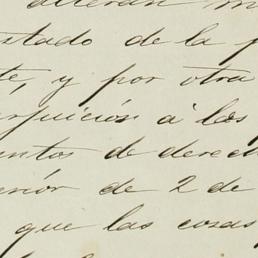 alteran
stado de la p
te, y por otra
rjuicios á los
untos de derech
erior de 2 de
que las cosas